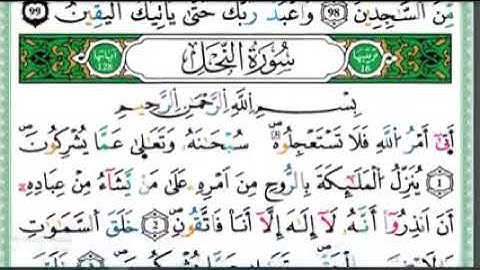 مِّنَ السَّٰجِدِينَ 98 وَاعْبُدْ رَبَّكَ حَتَّىٰ يَأْتِيَكَ الْيَقِينُ 99
ترتيبها 16 سُورَةُ النَّحْلِ آياتها 128
بِسْمِ اللَّهِ الرَّحْمَٰنِ الرَّحِيمِ
أَتَىٰٓ أَمْرُ اللَّهِ فَلَا تَسْتَعْجِلُوهُ ۚ سُبْحَٰنَهُۥ وَتَعَٰلَىٰ عَمَّا يُشْرِكُونَ
1 يُنَزِّلُ الْمَلَٰٓئِكَةَ بِالرُّوحِ مِنْ أَمْرِهِۦ عَلَىٰ مَن يَشَآءُ مِنْ عِبَادِهِۦٓ
أَنْ أَنذِرُوٓا أَنَّهُۥ لَآ إِلَٰهَ إِلَّآ أَنَا۠ فَاتَّقُونِ 2 خَلَقَ السَّمَٰوَٰتِ